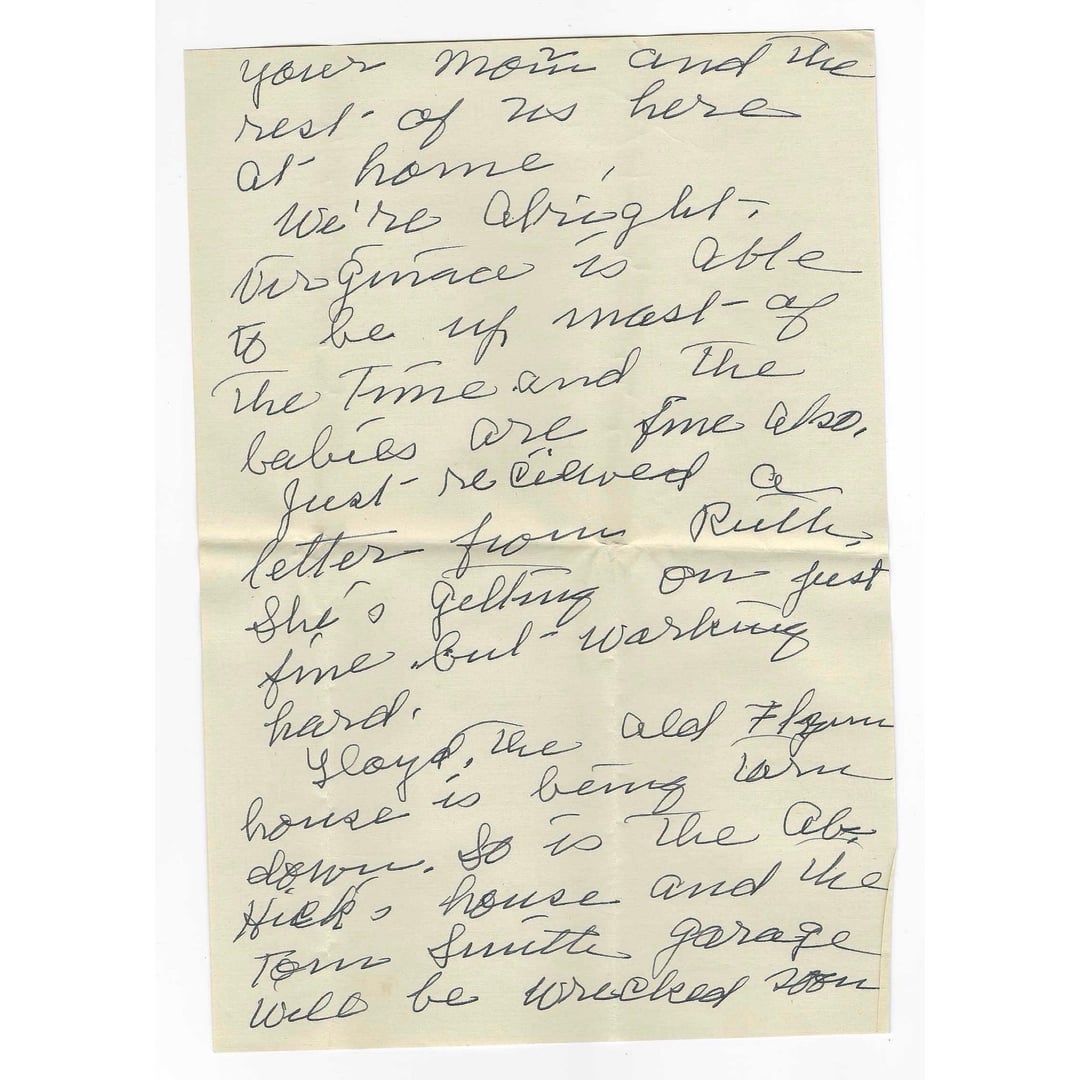 your mom and the
rest of us here
at home.
We're alright.
is able
to be up most of
the time and the
babies are fine also.
Just recieved a
letter from Ruth,
She's getting on just
fine but working
hard.
Lloyd, the old Flynn
house is being torn
down. So is the Ab.
Hicks house and the
Tom Smith garage
will be wrecked soon